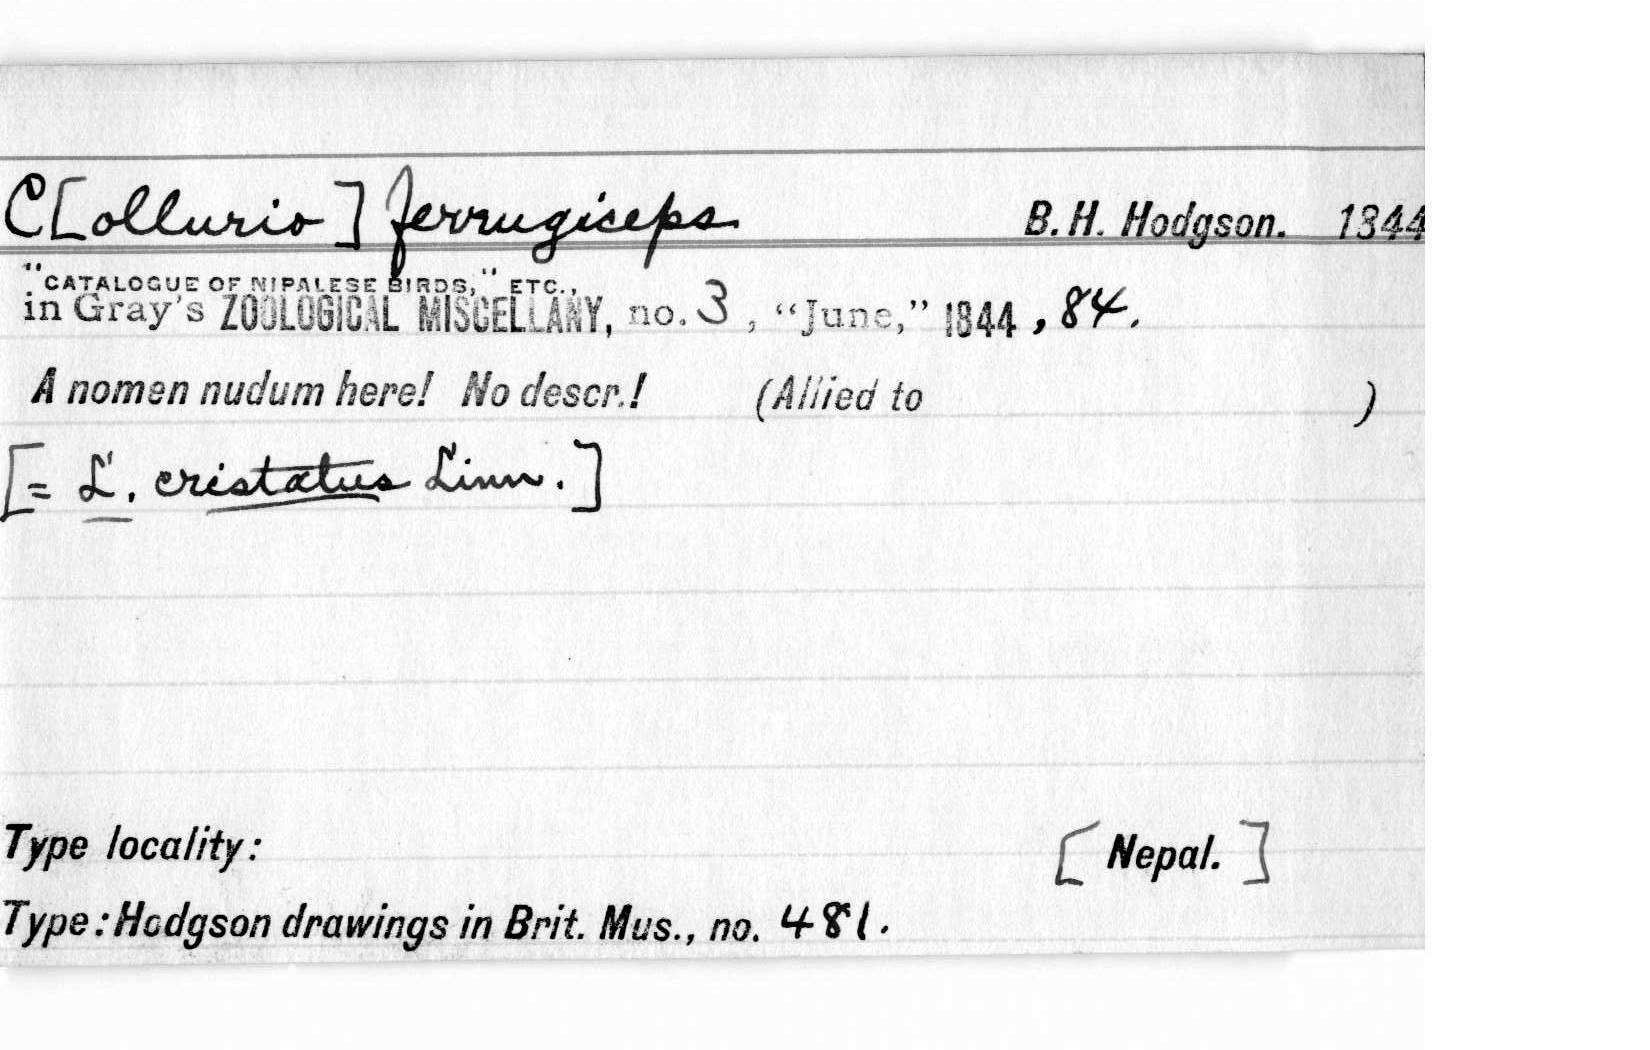 C[ollurio] ferrugiceps B. H. Hodgson. 1844
"CATALOGUE OF NIPALESE BIRDS," ETC.,
in Gray's ZOOLOGICAL MISCELLANY, no. 3, "June," 1844, 84.
A nomen nudum here! No descr.! (Allied to )
[= L. cristatus Linn.]
Type locality: [Nepal.]
Type: Hodgson drawings in Brit. Mus., no. 481.